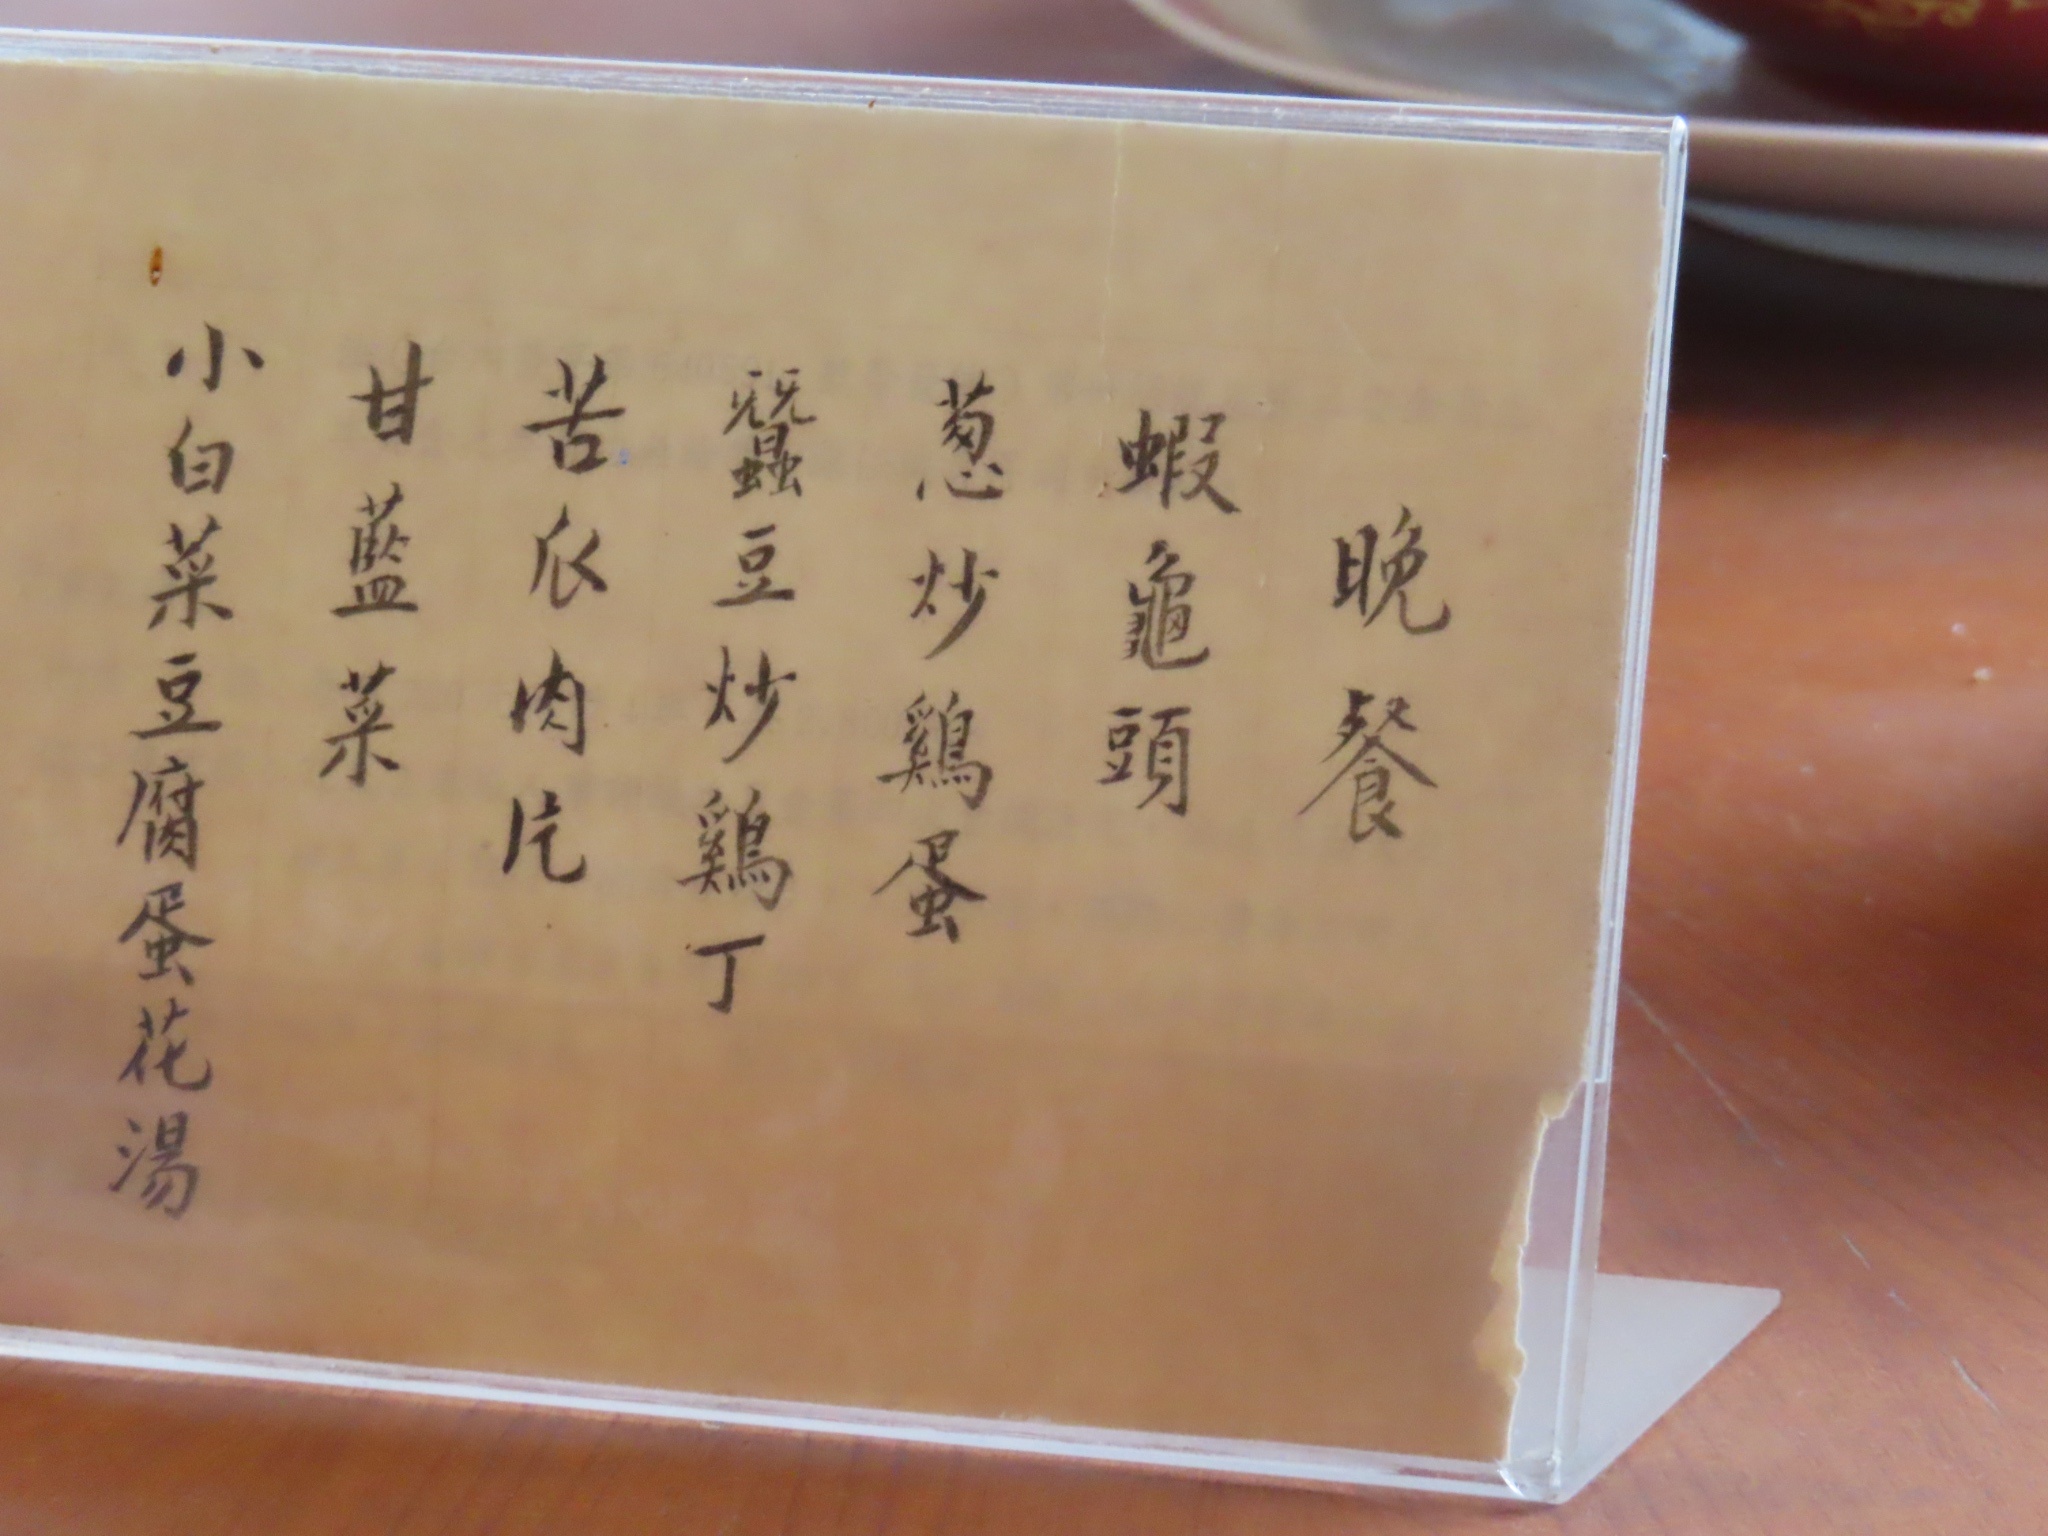 晚餐
蝦龜頭
葱炒鷄蛋
蠶豆炒鷄丁
苦瓜肉片
甘藍菜
小白菜豆腐蛋花湯